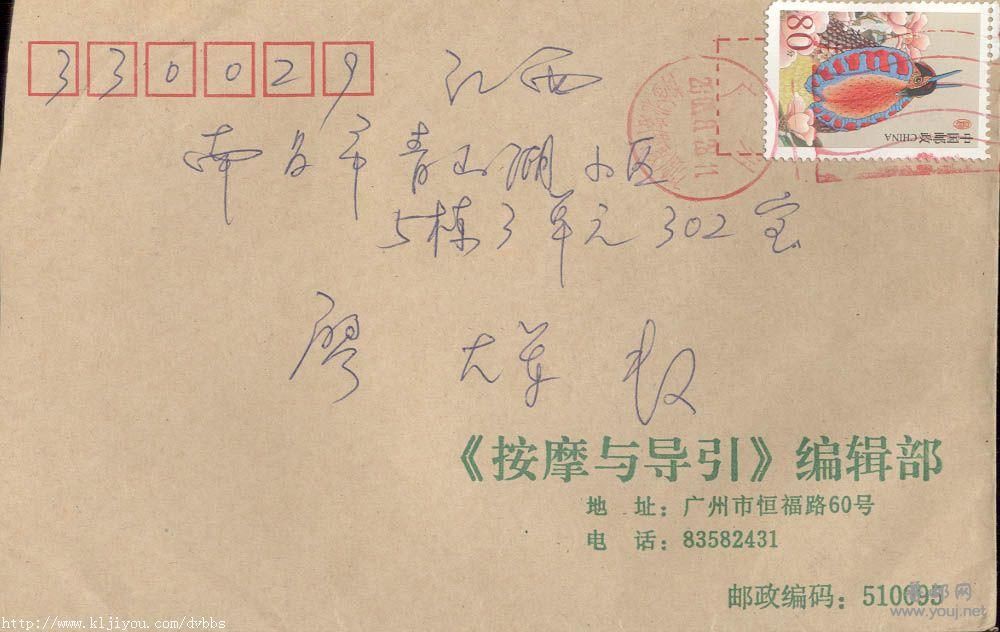 330029 江西
南昌市青山湖小区
5栋3单元302室
廖 大 收
80分
中国邮政 CHINA
《按摩与导引》编辑部
地 址：广州市恒福路60号
电 话：83582431
邮政编码：510095
http://www.kljiyou.com/dvbbs
www.youj.net